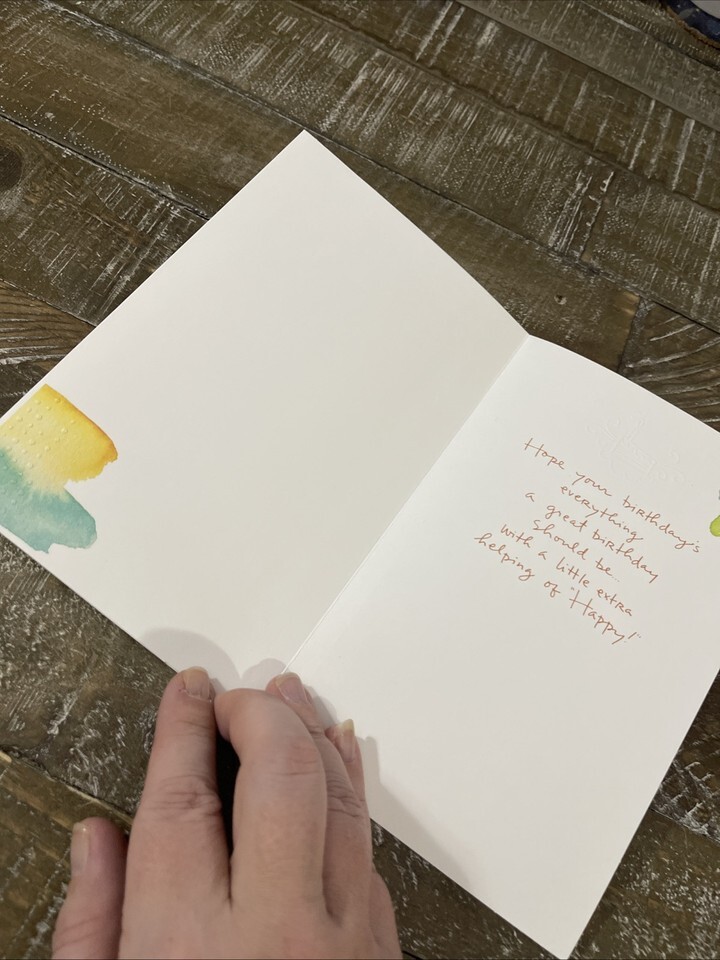 Hope your birthday's
everything
a great birthday
should be...
with a little extra
helping of "Happy!"